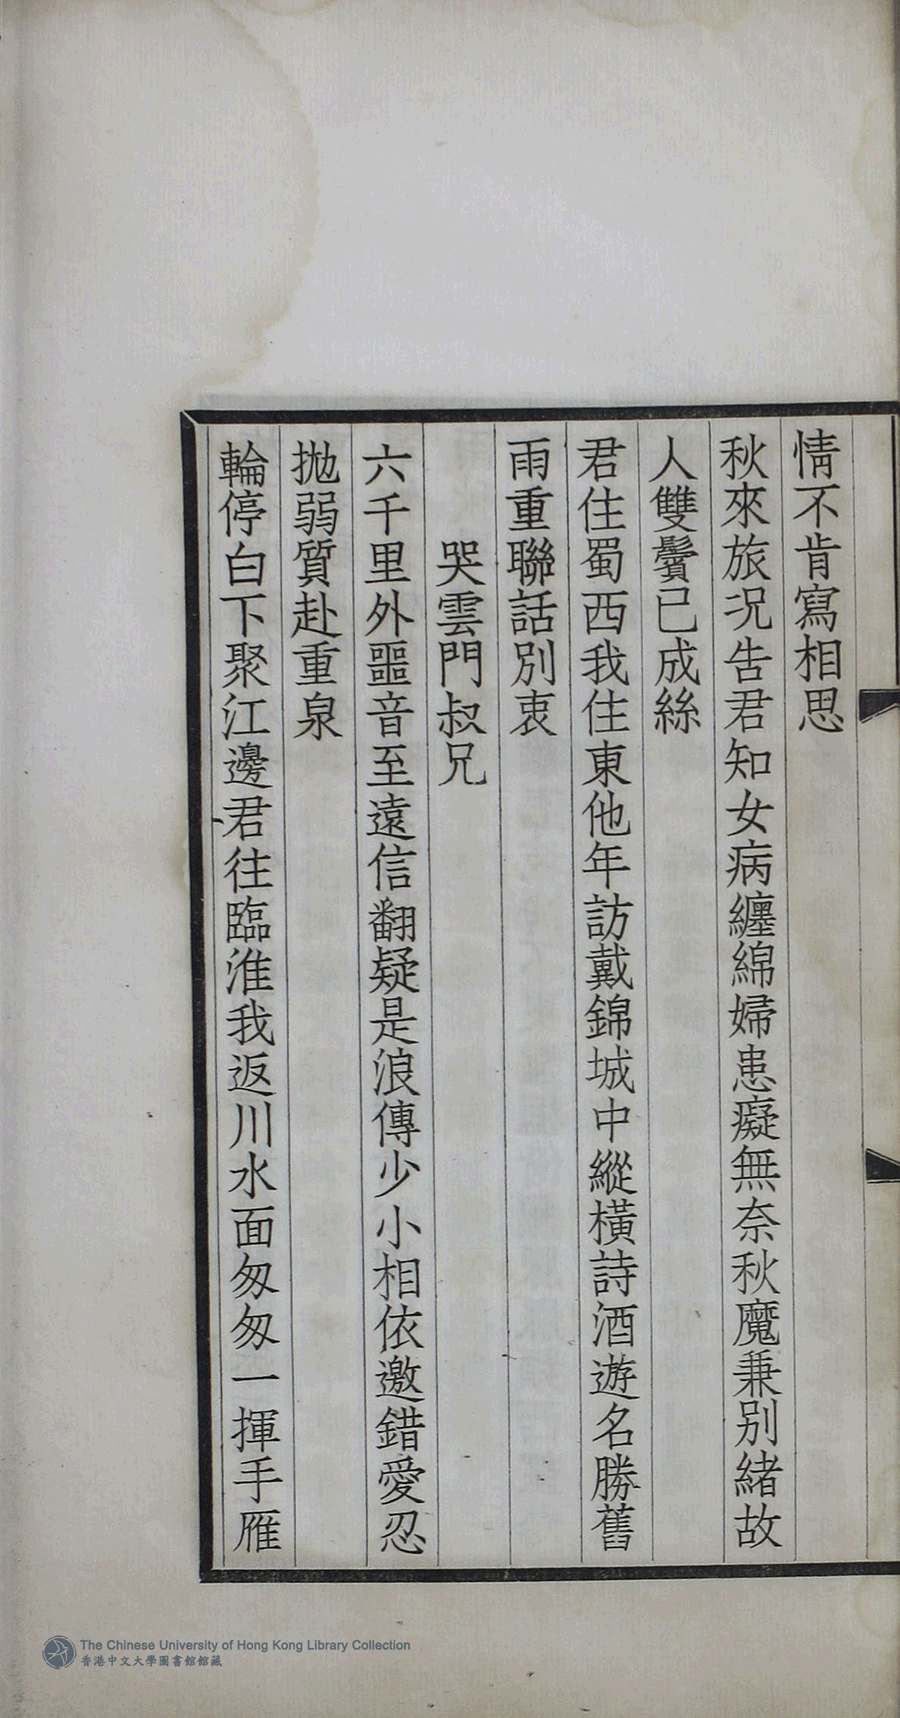 情不肯寫相思
秋來旅况告君知女病纏綿婦患癡無奈秋魔兼別緒故
人雙鬢已成絲
君住蜀西我住東他年訪戴錦城中縱橫詩酒遊名勝舊
雨重聯話別衷
哭雲門叔兄
六千里外噩音至遠信翻疑是浪傳少小相依邀錯愛忍
拋弱質赴重泉
輪停白下聚江邊君往臨淮我返川水面匆匆一揮手雁
The Chinese University of Hong Kong Library Collection
香港中文大學圖書館館藏